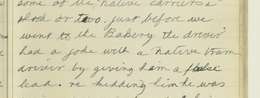 some of the native carriers a
or two. just before we
went to the Bakery the driver
had a joke with a native tram
driver by giving him a false
lead. re kidding him he was